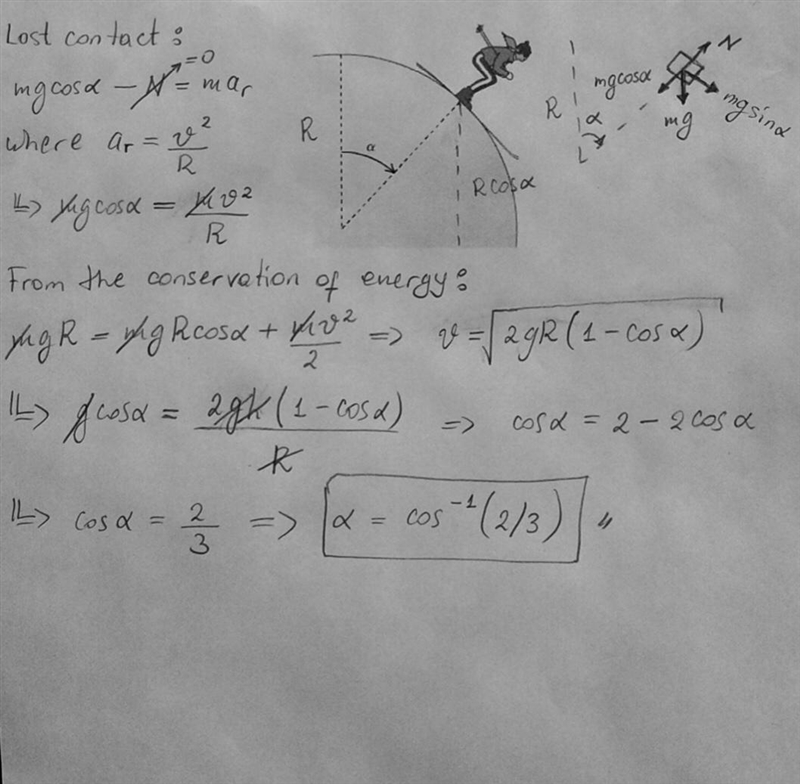 Lost contact:
mgcosα – N = mar
=0
where ar = v²/R
=> mgcosα = mv²/R
R
α
Rcosα
N
mgcosα
mgsinα
mg
R
α
From the conservation of energy:
mgR = mgRcosα + mv²/2 => v = √2gR(1-cosα)
=> gcosα = 2gR(1-cosα)/R => cosα = 2 - 2cosα
=> cosα = 2/3 => α = cos⁻¹(2/3) //